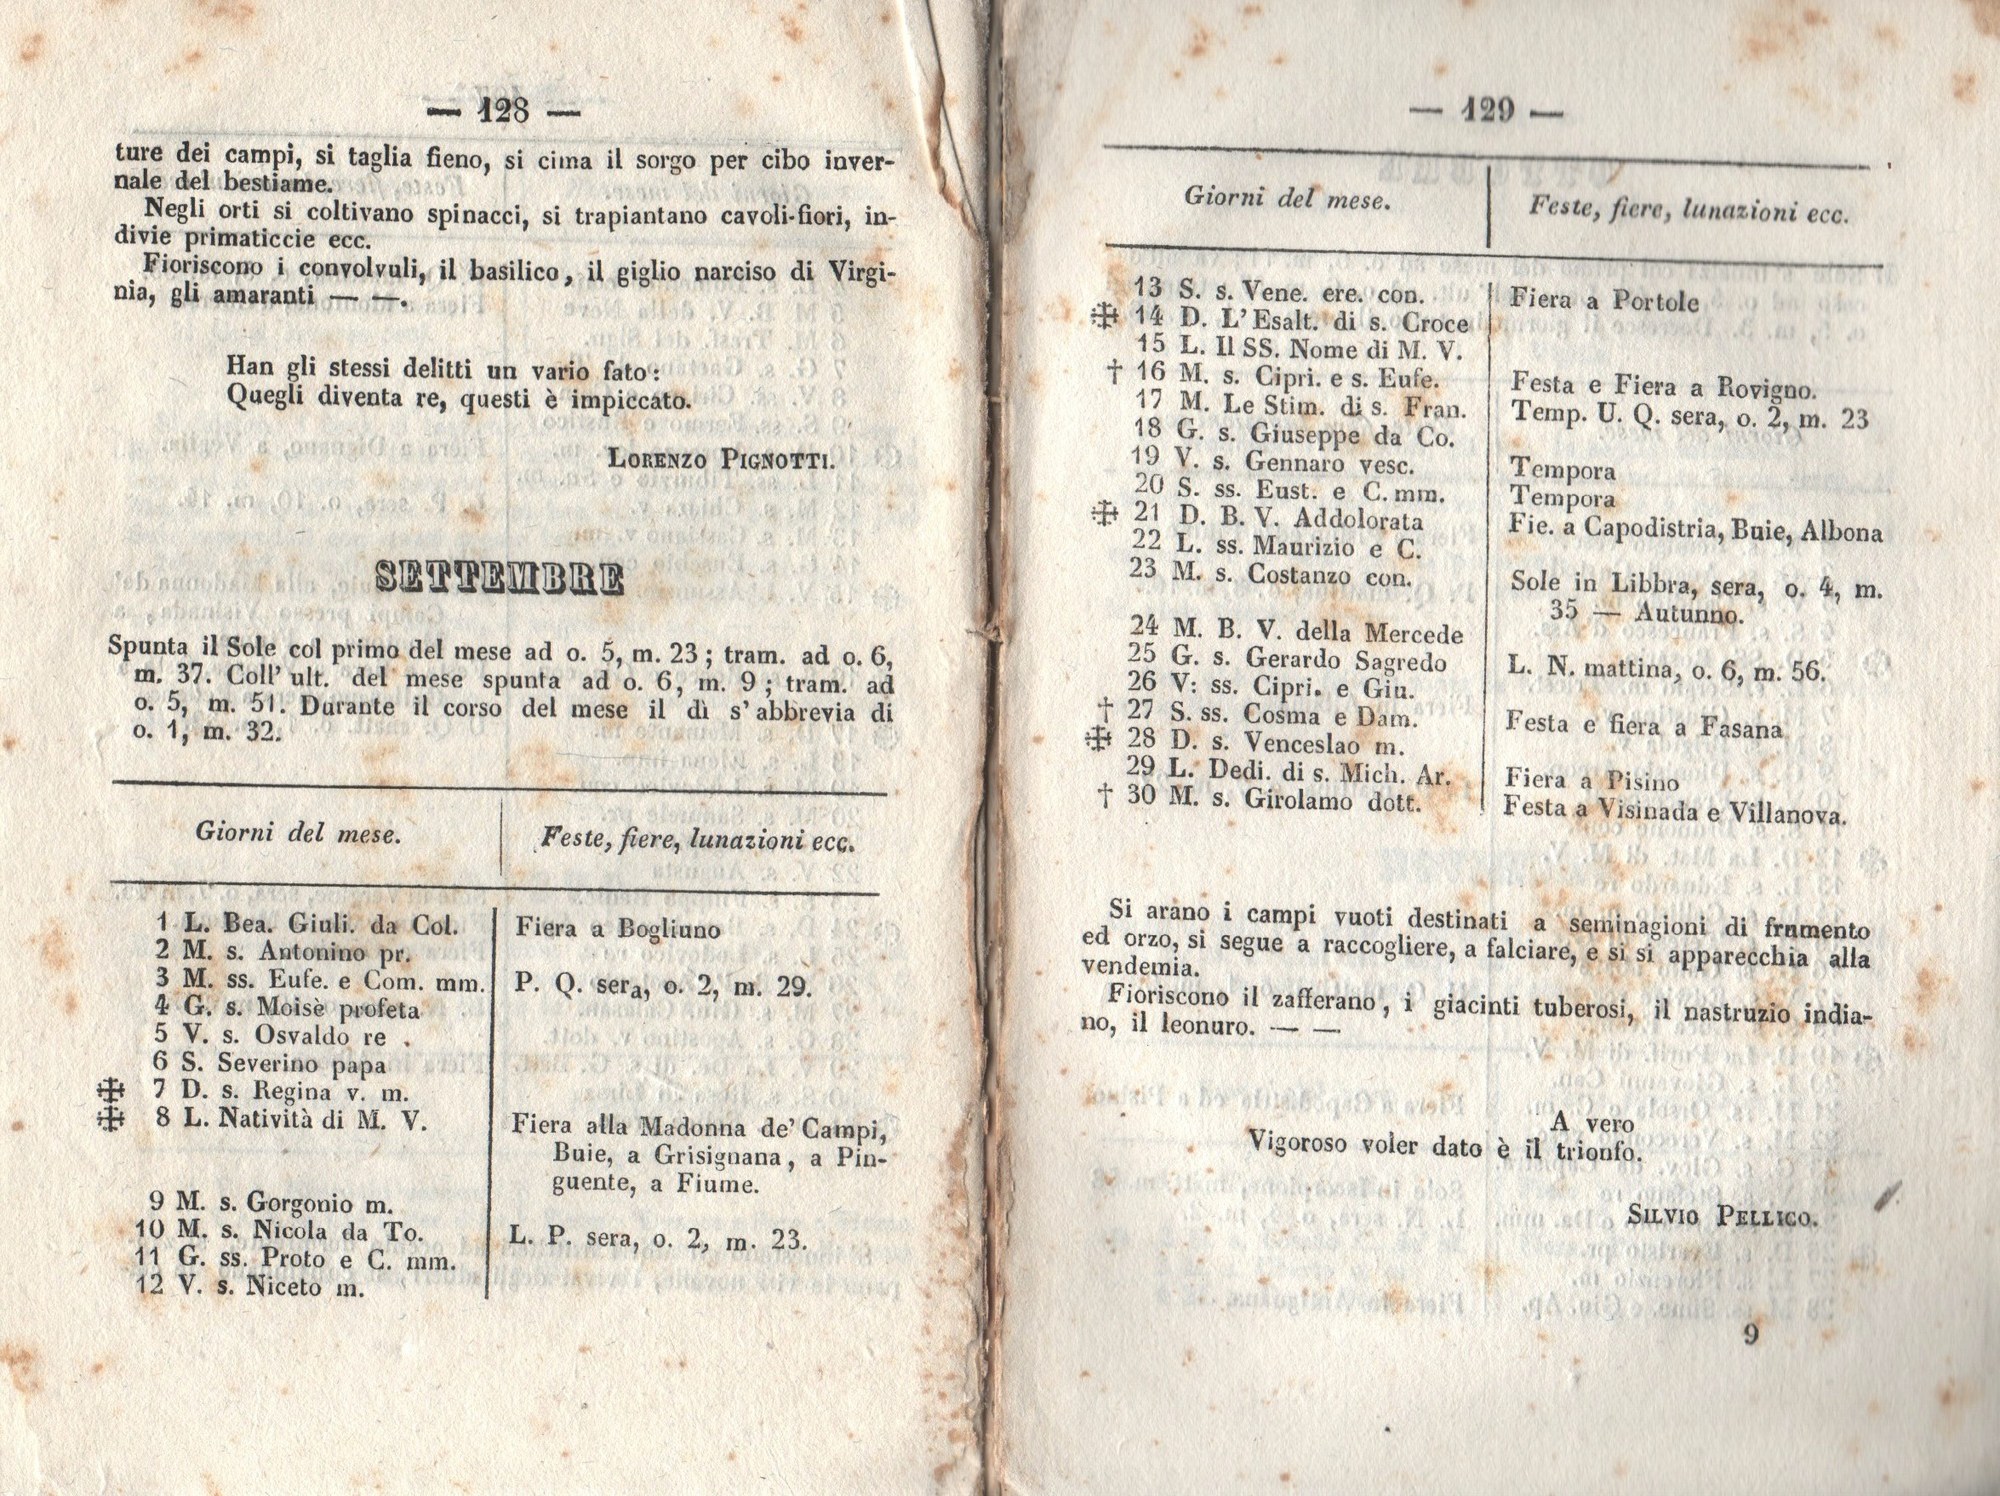 — 128 —
ture dei campi, si taglia fieno, si cima il sorgo per cibo inver-
nale del bestiame.
Negli orti si coltivano spinacci, si trapiantano cavoli-fiori, in-
divie primaticcie ecc.
Fioriscono i convolvuli, il basilico, il giglio narciso di Virgi-
nia, gli amaranti — —.
Han gli stessi delitti un vario fato:
Quegli diventa re, questi è impiccato.
LORENZO PIGNOTTI.
SETTEMBRE
Spunta il Sole col primo del mese ad o. 5, m. 23; tram. ad o. 6,
m. 37. Coll' ult. del mese spunta ad o. 6, m. 9; tram. ad
o. 5, m. 51. Durante il corso del mese il dì s' abbrevia di
o. 1, m. 32.
Giorni del mese. Feste, fiere, lunazioni ecc.
1 L. Bea. Giuli. da Col. Fiera a Bogliuno
2 M. s. Antonino pr.
3 M. ss. Eufe. e Com. mm. P. Q. sera, o. 2, m. 29.
4 G. s. Moisè profeta
5 V. s. Osvaldo re .
6 S. Severino papa
⸭ 7 D. s. Regina v. m.
⸭ 8 L. Natività di M. V. Fiera alla Madonna de' Campi,
Buie, a Grisignana, a Pin-
guente, a Fiume.
9 M. s. Gorgonio m.
10 M. s. Nicola da To. L. P. sera, o. 2, m. 23.
11 G. ss. Proto e C. mm.
12 V. s. Niceto m.
— 129 —
Giorni del mese. Feste, fiere, lunazioni ecc.
13 S. s. Vene. ere. con. Fiera a Portole
⸭ 14 D. L' Esalt. di s. Croce
15 L. Il SS. Nome di M. V.
† 16 M. s. Cipri. e s. Eufe. Festa e Fiera a Rovigno.
17 M. Le Stim. di s. Fran. Temp. U. Q. sera, o. 2, m. 23
18 G. s. Giuseppe da Co.
19 V. s. Gennaro vesc. Tempora
20 S. ss. Eust. e C. mm. Tempora
⸭ 21 D. B. V. Addolorata Fie. a Capodistria, Buie, Albona
22 L. ss. Maurizio e C.
23 M. s. Costanzo con. Sole in Libbra, sera, o. 4, m.
35 — Autunno.
24 M. B. V. della Mercede
25 G. s. Gerardo Sagredo L. N. mattina, o. 6, m. 56.
26 V: ss. Cipri. e Giu.
† 27 S. ss. Cosma e Dam. Festa e fiera a Fasana
⸭ 28 D. s. Venceslao m.
29 L. Dedi. di s. Mich. Ar. Fiera a Pisino
† 30 M. s. Girolamo dott. Festa a Visinada e Villanova.
Si arano i campi vuoti destinati a seminagioni di frumento
ed orzo, si segue a raccogliere, a falciare, e si si apparecchia alla
vendemia.
Fioriscono il zafferano, i giacinti tuberosi, il nastruzio india-
no, il leonuro. — —
A vero
Vigoroso voler dato è il trionfo.
SILVIO PELLICO.
9